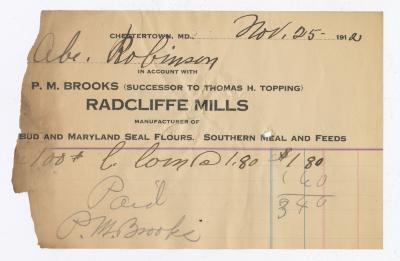 CHESTERTOWN, MD., Nov. 25- 1912
Abe. Robinson
IN ACCOUNT WITH
P. M. BROOKS (SUCCESSOR TO THOMAS H. TOPPING)
RADCLIFFE MILLS
MANUFACTURER OF
BUD AND MARYLAND SEAL FLOURS. SOUTHERN MEAL AND FEEDS
100 # C Corn @ 1.80 $1 80
1 60
3 40
Paid
P. M. Brooks